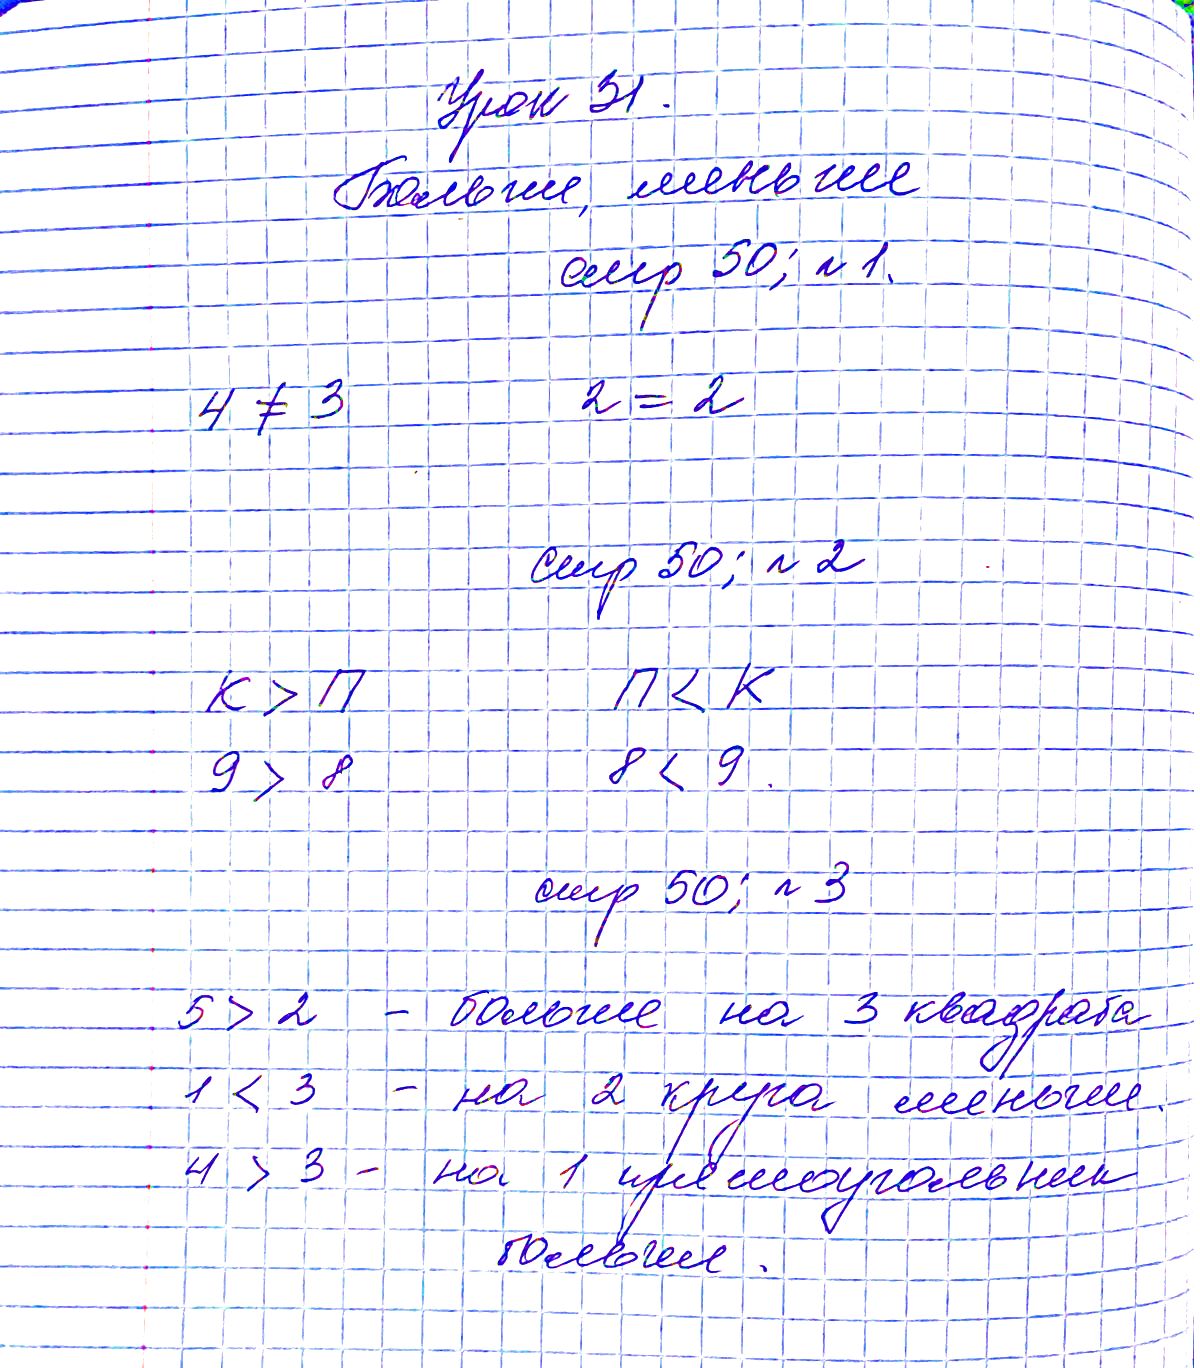 Урок 31.
Больше, меньше
стр 50; № 1.
4 ≠ 3 2 = 2
стр 50; № 2
К > П П < К
9 > 8 8 < 9.
стр 50; № 3
5 > 2 - больше на 3 квадрата
1 < 3 - на 2 круга меньше.
4 > 3 - на 1 прямоугольник
больше.